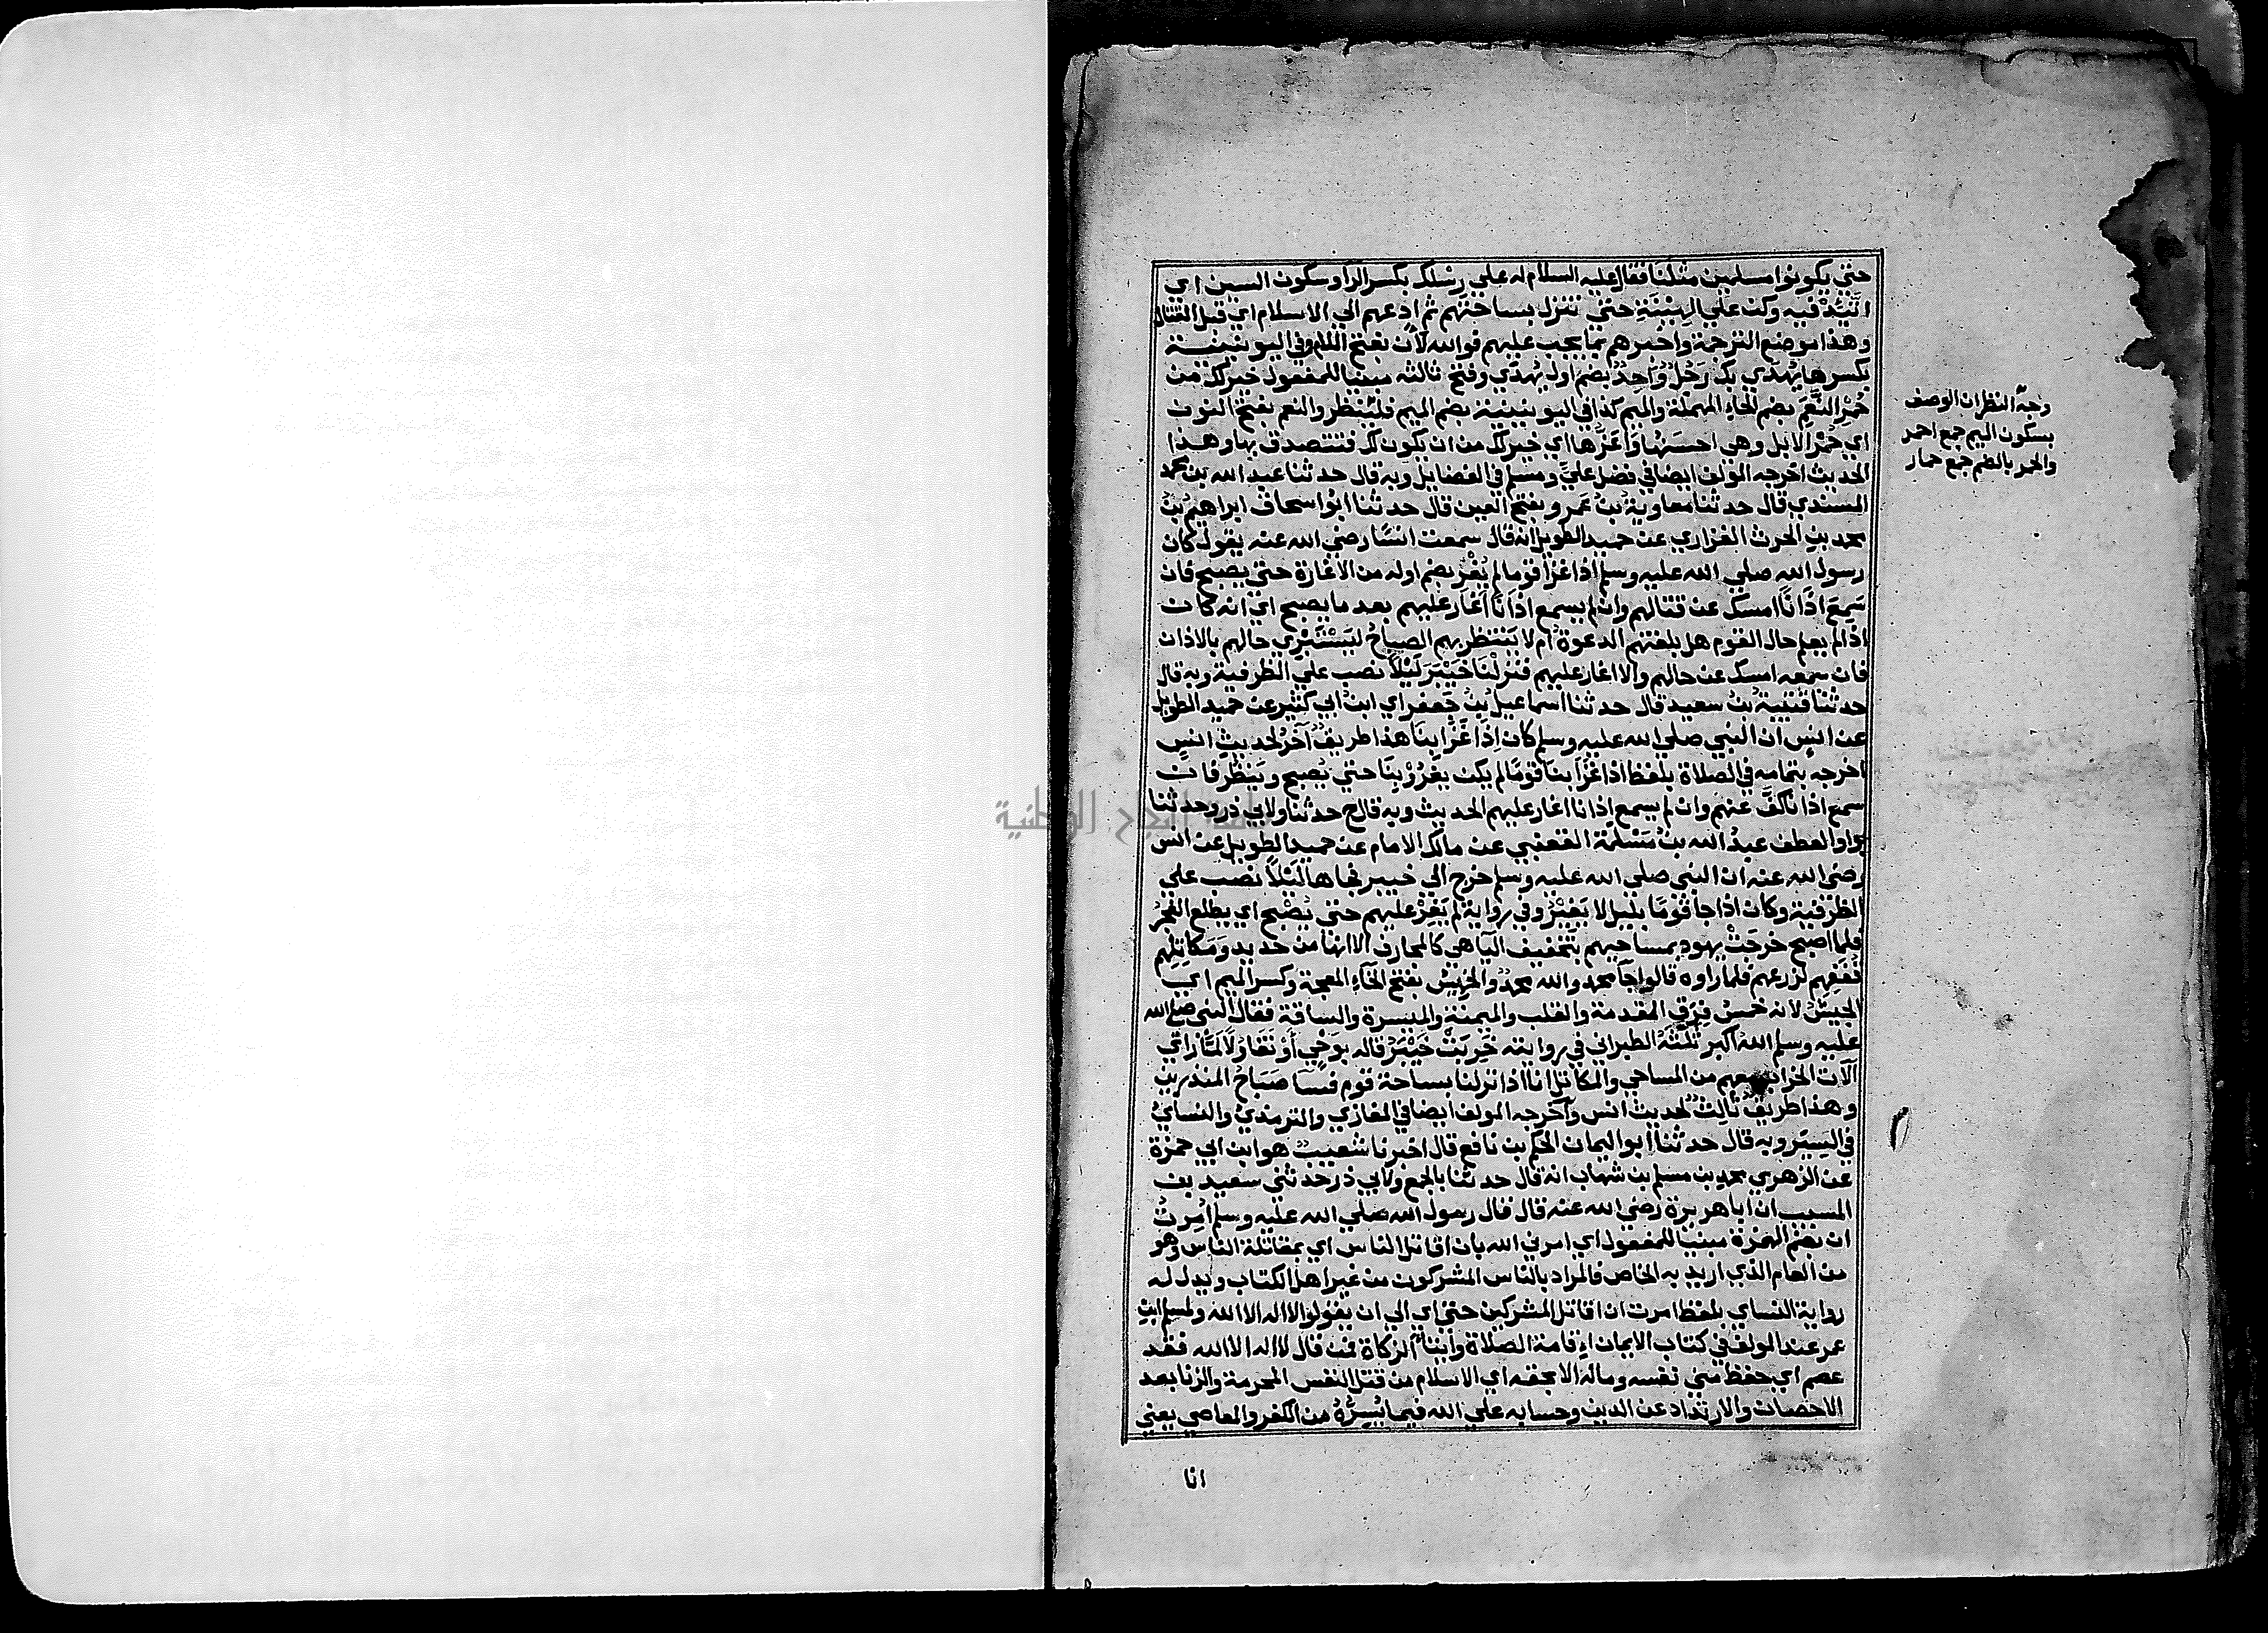 حتي يكونوا مسلمين مثلنا فقال عليه السلام له علي رسلك بكسر الرا وسكون السين اي
اتئد فيه وكن علي الهينة حتي تنزل بساحتهم ثم ادعهم الي الاسلام اي قبل القتال
وهذا موضع الترجمة واخبرهم بما يجب عليهم فوالله لان بفتح اللام وفي اليونينية
بكسرها يهدي بك رجل واحد بضم اول يهدي وفتح ثالثه مبنيا للمفعول خير لك من
حمر النعم بضم الحاء المهملة والميم كذا في اليونينية بضم الميم فلينظر والنعم بفتح النون
اي حمر الابل وهي احسنها واعزها اي خير لك من ان يكون لك فتتصدق بها وهذا
الحديث اخرجه المولف ايضا في فضل علي ومسلم في الفضايل وبه قال حدثنا عبد الله بن محمد
المسندي قال حدثنا معاوية بن عمرو بفتح العين قال حدثنا ابوا سحاق ابراهيم بن
محمد بن الحرث الفزاري عن حميد الطويل انه قال سمعت انسا رضي الله عنه يقول كان
رسول الله صلي الله عليه وسلم اذا غزا قوما لم يغر بضم اوله من الاغارة حتي يصبح فان
سمع اذانا امسك عن قتالهم وان لم يسمع اذانا اغار عليهم بعد ما يصبح اي انه كان
اذا لم يعلم حال القوم هل بلغتهم الدعوة ام لا ينتظر بهم الصباح ليستبري حالهم بالاذان
فان سمعه امسك عن حالهم والا اغار عليهم فنزلنا خيبر ليلا نصب علي الظرفية وبه قال
حدثنا قتيبة بن سعيد قال حدثنا اسماعيل بن جعفر اي ابن ابي كثير عن حميد الطويل
عن انس ان النبي صلي الله عليه وسلم كان اذا غزا بنا هذا طريق آخر لحديث انس
اخرجه بتمامه في الصلاة بلفظ اذا غزا بنا قوما لم يكن يغزو بنا حتي يصبح وينظر فان
سمع اذانا كف عنهم وان لم يسمع اذانا اغار عليهم الحديث وبه قال ح حدثنا ولابي ذر وحدثنا
بواو العطف عبد الله بن مسلمة القعنبي عن مالك الامام عن حميد الطويل عن انس
رضي الله عنه ان النبي صلي الله عليه وسلم خرج الي خيبر فجاها ليلا نصب علي
الظرفية وكان اذا جا قوما بليل لا يغير وفي رواية لم يغر عليهم حتي يصبح اي يطلع الفجر
فلما اصبح خرجت يهود بمساحيهم بتخفيف اليا هي كالمجارف الا انها من حديد ومكاتلهم
قففهم لزرعهم فلما راوه قالوا جا محمد والله محمد والخميس بفتح الخاء المعجمة وكسر الميم اي
الجيش لانه خمس فرق المقدمة والقلب والميمنة والميسرة والساقة فقال النبي صلي الله
عليه وسلم الله اكبر ثلثه الطبراني في روايته خربت خيبر قاله بوحي او تفاؤلا لما راي
آلات الخراب معهم من المساحي والمكاتل انا اذا نزلنا بساحة قوم فسا صباح المنذرين
وهذا طريق ثالث لحديث انس وآخرجه المولف ايضا في المغازي والترمذي والنساي
في السير وبه قال حدثنا ابو اليمان الحكم بن نافع قال اخبرنا شعيب هو ابن ابي حمزة
عن الزهري محمد بن مسلم بن شهاب انه قال حدثنا بالجمع ولابي ذر حدثني سعيد بن
المسيب ان ابا هريرة رضي الله عنه قال قال رسول الله صلي الله عليه وسلم امرت
ان بضم الهمزة مبنيا للمفعول اي امرني الله بان اقاتل الناس اي بمقاتلة الناس وهو
من العام الذي اريد به الخاص فالمراد بالناس المشركون من غير اهل الكتاب ويدل له
رواية النساي بلفظ امرت ان اقاتل المشركين حتي اي الي ان يقولوا لا اله الا الله ولمسلم ابن
عمر عند المولف في كتاب الايمان اقامة الصلاة وايتا الزكاة فمن قال لا اله الا الله فقد
عصم اي حفظ مني نفسه وماله الا بحقه اي الاسلام من قتل النفس المحرمة والزنا بعد
الاحصان والارتداد عن الدين وحسابه علي الله فيما يسره من الكفر والمعاصي يعني
انا
وجه النظر ان الوصف
بسكون الميم جمع احمر
والحمر بالضم جمع حمار
النجاح الوطنية